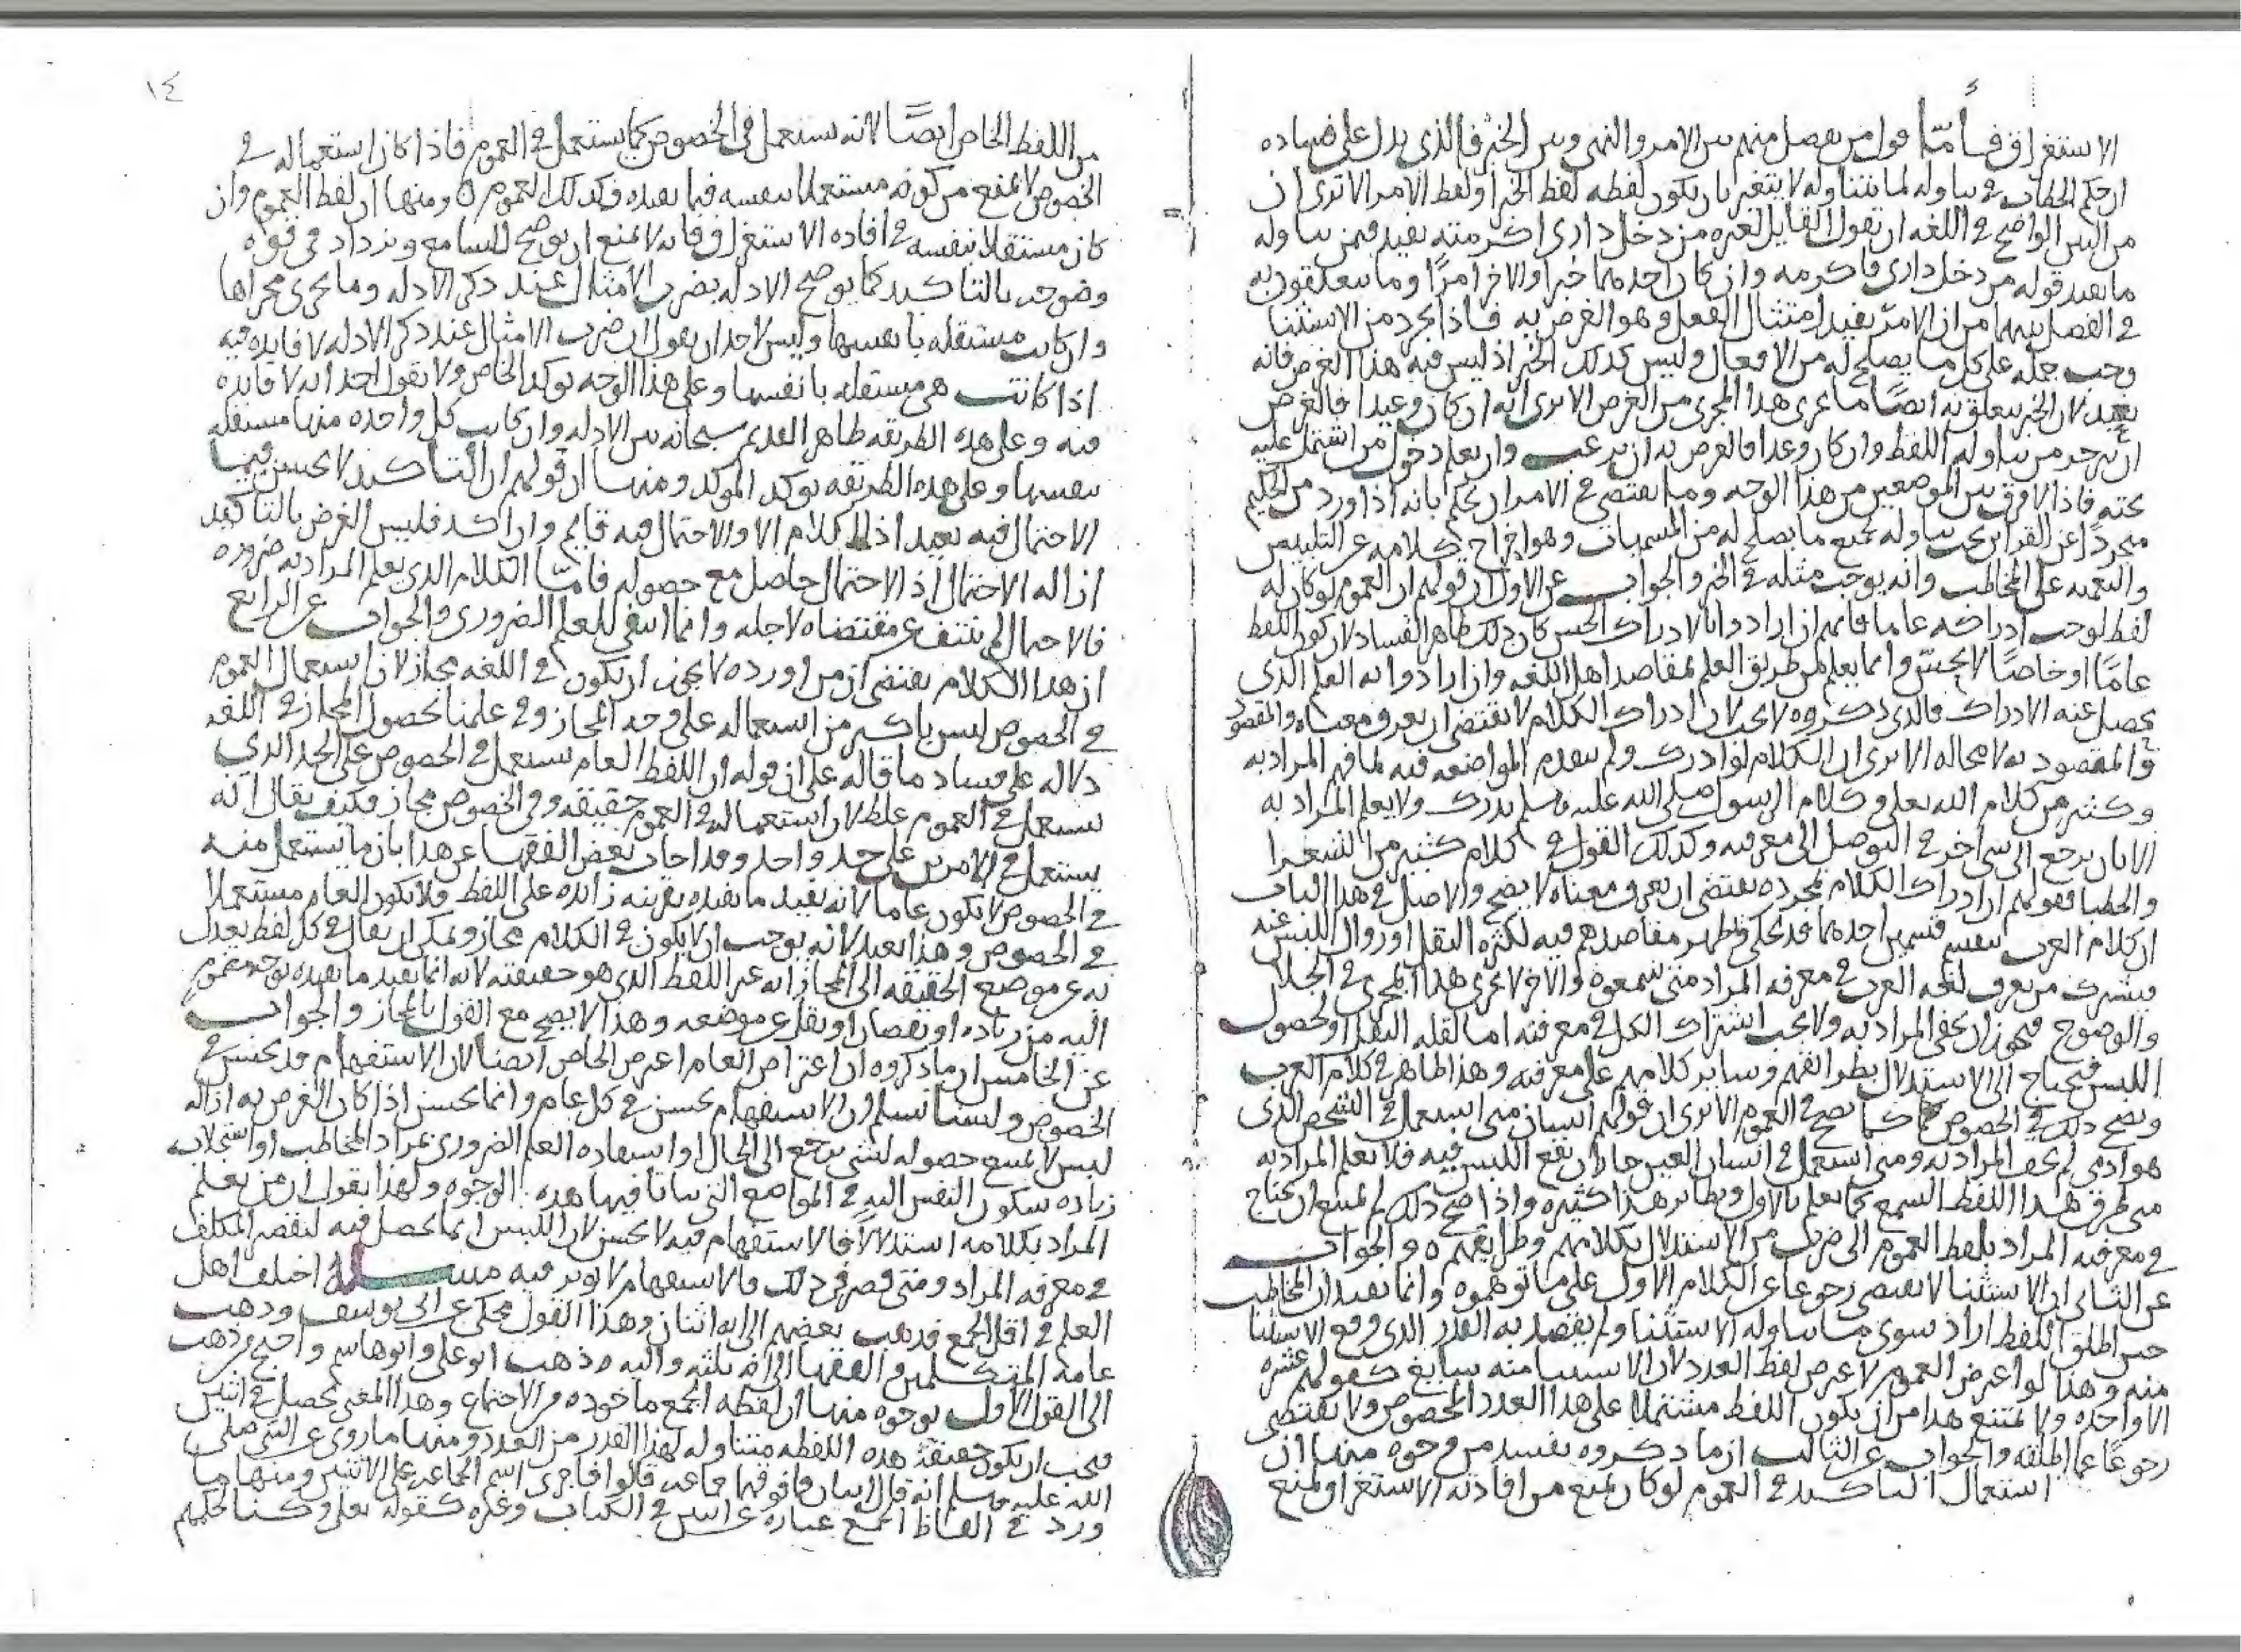 الاستغراق فأما قول من يفصل منهم بين الامر والنهي وبين الخبر فالذي يدل على فساده
ان حكم الخطاب في تناوله لما يتناوله لا يتغير بان يكون لفظه لفظ الخبر او لفظ الامر الا ترى ان
من البين الواضح في اللغه ان يقول القايل لغيره من دخل داري اكرمته يفيد فيمن تناوله
ما يفيد قوله من دخل داري فاكرمه وان كان احدهما خبرا والاخر امرًا وما يتعلقون به
في الفصل بينهما من ان الامر يفيد امتثال الفعل وهو الغرض به فاذا تجرد من الاستثنا
وجب حمله على كل ما يصلح له من الافعال وليس كذلك الخبر اذ ليس فيه هذا الغرض فانه
بعيد لان الخبر يتعلق به ايضًا ما يجري هذا المجرى من الغرض الا ترى انه ان كان وعيدا فالغرض
ان يزجر من تناوله اللفظ وان كان وعدا فالغرض به ان يرغب وان يعلم دخول من اشتمل عليه
تحته فاذا لا فرق بين الموضعين من هذا الوجه وما يقتضي في الامر ان يحكم بانه اذا ورد من الحكيم
مجردًا عن القراين يجب تناوله لجميع ما يصلح له من المسميات وهو اخراج كلامه عن التلبيس
والتعميه على المخاطب وانه يوجب مثله في الخبر والجواب عن الاول ان قولهم ان العموم لو كان له
لفظ لوجب ادراكه عاما فانهم ان ارادوا بالادراك الحس كان ذلك ظاهر الفساد لان كون اللفظ
عامًا او خاصًا لا يحس وانما يعلم من طريق العلم بمقاصد اهل اللغه وان ارادوا به العلم الذي
يحصل عنه الادراك فالذي ذكروه لا يجب لان ادراك الكلام لا يقتضي ان يعرف معناه والمقصود
والمقصود به لا محاله الا ترى ان الكلام لو ادرك ولم يتقدم المواضعه فيه لما فهم المراد به
وكثير من كلام الله تعلى وكلام الرسول صلى الله عليه وسلم يدرك ولا يعلم المراد به
الا بان يرجع الى شي اخر في التوصل الى معرفته وكذلك القول في كلام كثير من الشعرا
والخطبا فقولهم ان ادراك الكلام بمجرده يقتضي ان يعرف معناه لا يصح والاصل في هذا الباب
ان كلام العرب ينقسم قسمين احدهما قد تجلى وظهر مقاصدهم فيه لكثره النقل او زوال اللبس عنه
فيشترك من يعرف لغه العرب في معرفه المراد متى سمعوه والاخر لا يجري هذا المجرى في الجلا
والوضوح فيجوز ان يخفى المراد به ولا يجب اشتراك الكل في معرفته اما لقله النقل او لحصول
اللبس فيحتاج الى الاستدلال بظواهر وساير كلامهم على معرفته وهذا الظاهر في كلام العرب
ويصح ذلك في الخصوص كما يصح في العموم الا ترى ان قولهم انسان متى استعمل في الشخص الذي
هو ادمي لم يخف المراد به ومتى استعمل في انسان العين جاز ان يقع اللبس فيه فلا يعلم المراد به
متى طرق هذا اللفظ السمع كما يعلم بالاول ونظاير هذا كثيره واذا صح ذلك لم يمتنع ان يحتاج
في معرفه المراد بلفظ العموم الى ضرب من الاستدلال بكلامهم وطرايقهم ه والجواب
عن الثاني ان الاستثنا لا يقتضي رجوعا عن الكلام الاول على ما توهموه وانما يفيد ان المخاطب
حين اطلق اللفظ اراد سوى ما تناوله الاستثنا ولم يقصد به القدر الذي وقع الاستثنا
منه وهذا لو اعترض العموم لاعترض لفظ العدد لان الاستثنا منه سايغ كقولهم عشره
الا واحده ولا يمتنع هذا من ان يكون اللفظ مشتملا على هذا العدد المخصوص ولا يقتضي
رجوعًا عما اطلقه والجواب عن الثالث ان ما ذكروه يفسد من وجوه منها ان
استعمال التاكيد في العموم لو كان يمنع من افادته الاستغراق لمنع
١٤
من اللفظ الخاص ايضًا لانه يستعمل في الخصوص كما يستعمل في العموم فاذا كان استعماله في
الخصوص لا يمنع من كونه مستعملا بنفسه فيما يفيده فكذلك العموم ه ومنها ان لفظ العموم وان
كان مستقلا بنفسه في افاده الاستغراق فانه لا يمنع ان يوضح للسامع ويزداد في قوه
وضوحه بالتاكيد كما يوضح الادله بضرب الامثال عند ذكر الادله وما يجري مجراها
وان كانت مستقله بانفسها وليس لاحد ان يقول ان ضرب الامثال عند ذكر الادله لا فايده فيه
اذا كانت هي مستقله بانفسها وعلى هذا الوجه يوكد الخاص ولا يقول احد انه لا فايده
فيه وعلى هذه الطريقه ظاهر القديم سبحانه بين الادله وان كانت كل واحده منها مستقله
بنفسها وعلى هذه الطريقه يوكد الموكد ومنها ان قولهم ان التاكيد لا يحسن فيما
الاحتمال فيه بعيد اذ لا كلام الا والاحتمال فيه قايم وان اكد فليس الغرض بالتاكيد
ازاله الاحتمال اذ الاحتمال حاصل مع حصوله فامّا الكلام الذي يعلم المراد به ضروره
فالاحتمال لم ينتف عن مقتضاه لاجله وانما انتفى للعلم الضروري والجواب عن الرابع
ان هذا الكلام يقتضي ان من اورده لا يجيز ان يكون في اللغه مجاز لان استعمال العموم
في الخصوص ليس باكثر من استعماله على وجه المجاز وفي علمنا بحصول المجاز في اللغه
دلاله على فساد ما قاله على ان قوله ان اللفظ العام يستعمل في الخصوص على الحد الذي
يستعمل في العموم غلط لان استعماله في العموم حقيقه وفي الخصوص مجاز فكيف يقال انه
يستعمل في الامرين على حد واحد وقد اجاب بعض الفقها عن هذا بان ما يستعمل منه
في الخصوص لا يكون عاما لانه يفيد ما يفيده بقرينه زايده على اللفظ فلا يكون العام مستعملا
في الخصوص وهذا بعيد لانه يوجب ان لا يكون في الكلام مجاز ويمكن ان يقال في كل لفظ يعدل
به عن موضع الحقيقه الى المجاز انه غير اللفظ الذي هو حقيقته لانه انما يفيد ما يفيده بوجه مضموم
اليه من زياده او نقصان او نقل عن موضعه وهذا لا يصح مع القول بالمجاز والجواب
عن الخامس ان ما ذكروه ان اعترض العام اعترض الخاص ايضا لان الاستفهام قد يحسن في
الخصوص ولسنا نسلم ان الاستفهام يحسن في كل عام وانما يحسن اذا كان الغرض به ازاله
لبس لا يمتنع حصوله لشي يرجع الى الحال او استفاده العلم الضروري بمراد المخاطب او استجلاب
زياده سكون النفس اليه في المواضع التي يتاتا فيها هذه الوجوه ولهذا يقول ان من يعلم
المراد بكلامه استدلالا فالاستفهام فيه لا يحسن لان اللبس انما يحصل فيه لتقصير المكلف
في معرفه المراد ومتى قصر في ذلك فالاستفهام لا يوثر فيه مسـئله اختلف اهل
العلم في اقل الجمع فذهب بعضهم الى انه اثنان وهذا القول محكي عن ابي يوسف وذهب
عامه المتكلمين والفقها الى انه ثلثه واليه ذهب ابو علي وابو هاشم واحتج من ذهب
الى القول الاول بوجوه منها ان لفظه الجمع ماخوذه من الاجتماع وهذا المعنى يحصل في اثنين
فيجب ان يكون حقيقه هذه اللفظه متناوله لهذا القدر من العدد ومنها ما روي عن النبي صلى
الله عليه وسلم انه قال الاثنان فما فوقهما جماعه قالوا فاجرى اسم الجماعه على الاثنين ومنها ما
ورد في الفاظ الجمع عباره عن اثنين في الكتاب وغيره كقوله تعلى وكنا لحكمهم